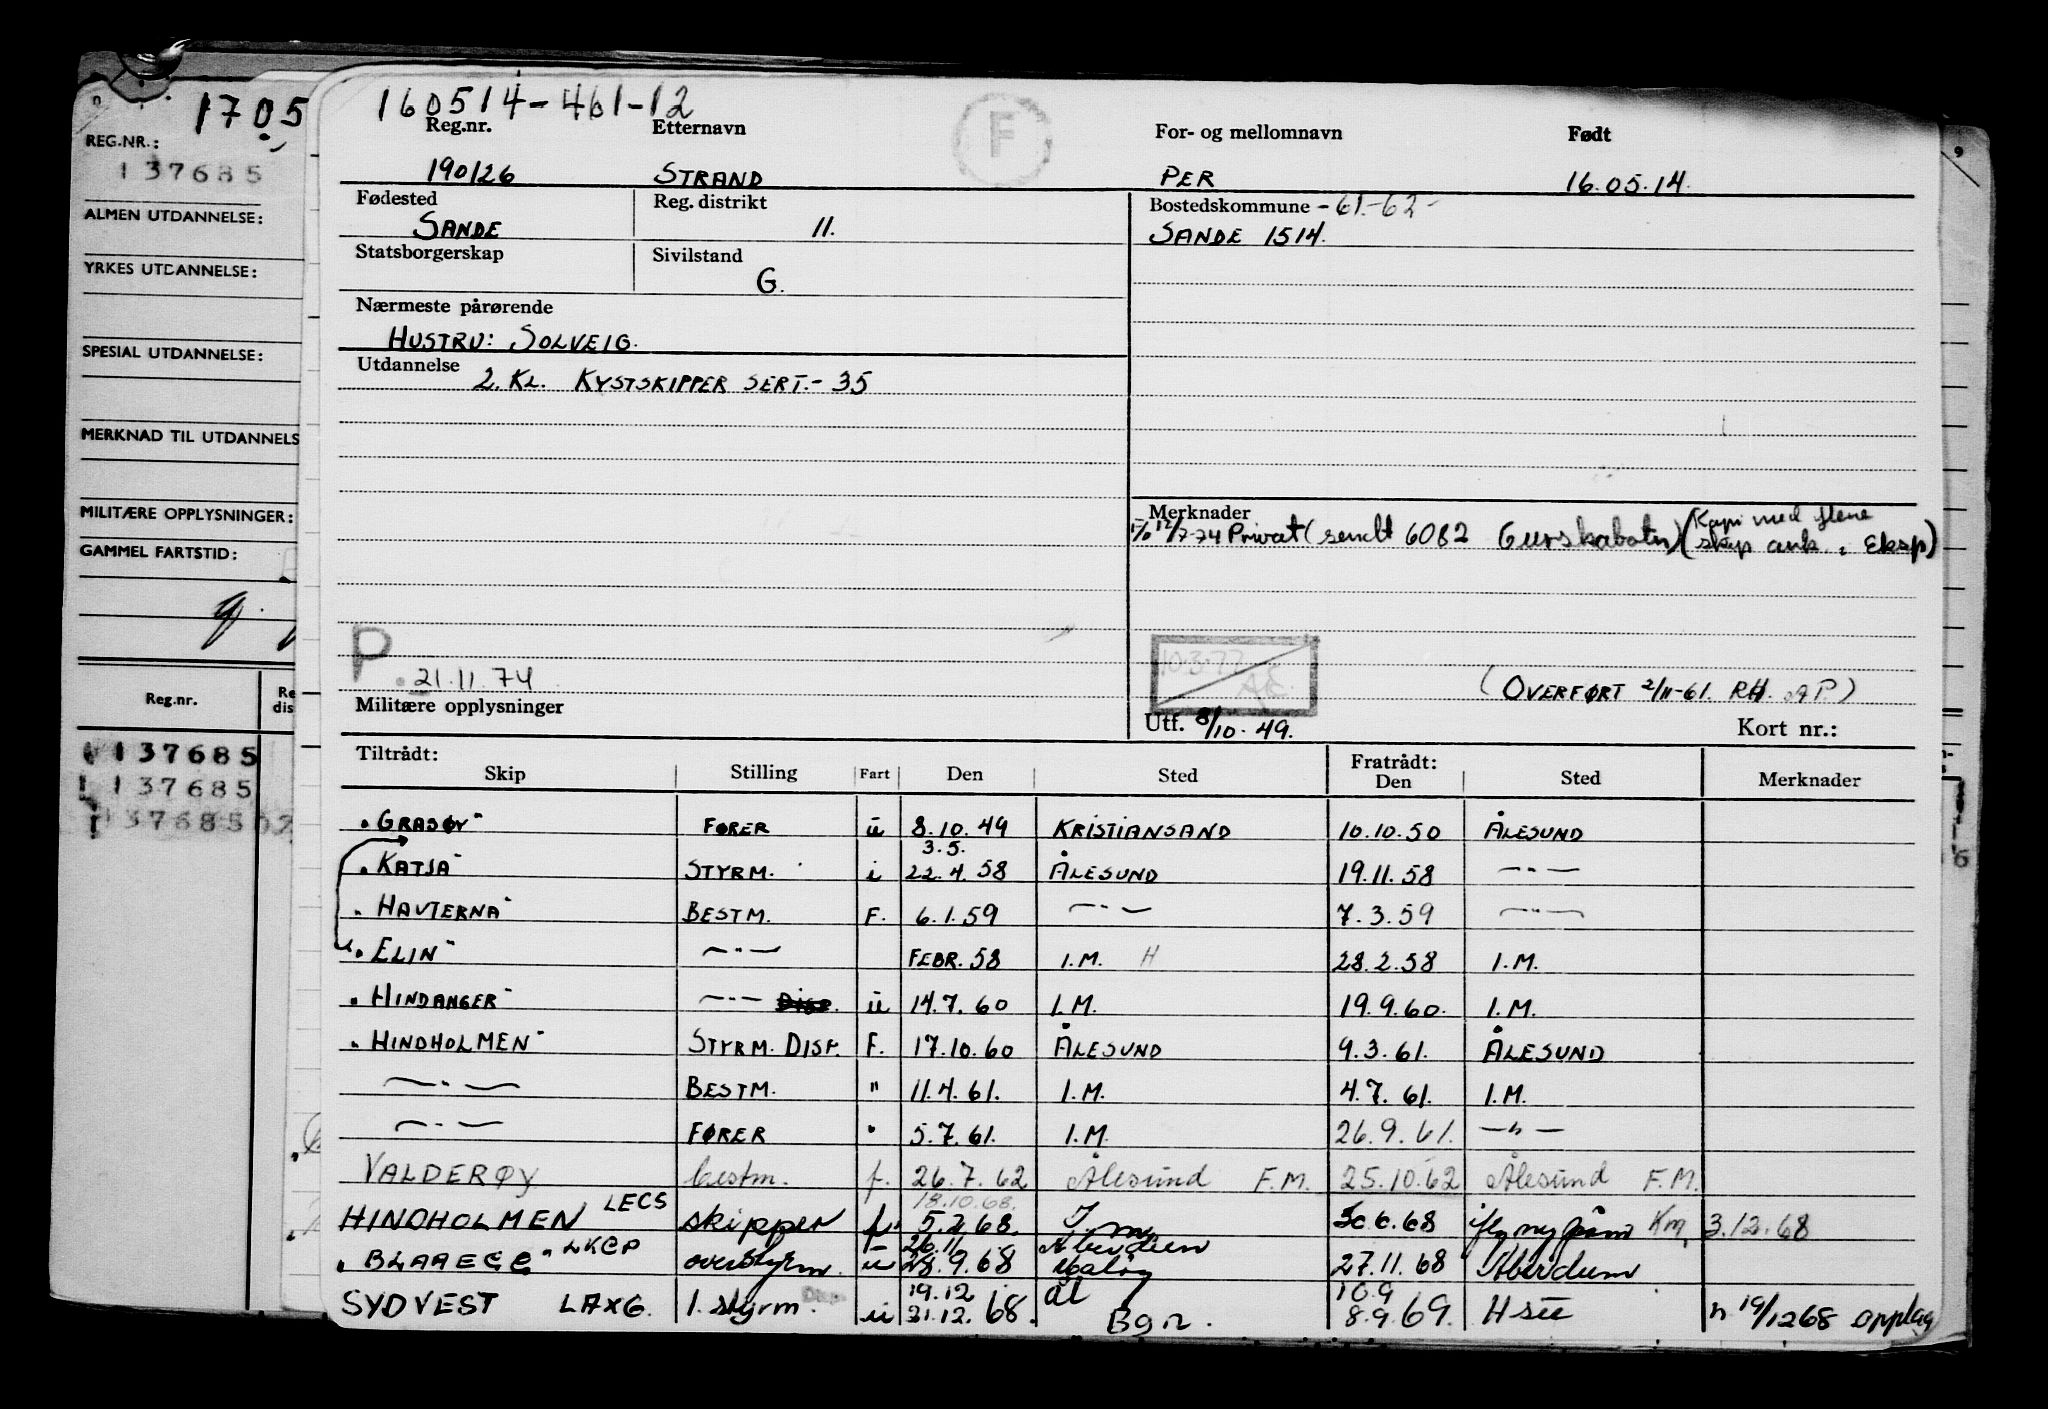 1705
REG.NR.:
137685
ALMEN UTDANNELSE:
YRKES UTDANNELSE:
SPESIAL UTDANNELSE:
MERKNAD TIL UTDANNELS
MILITÆRE OPPLYSNINGER:
GAMMEL FARTSTID:
Reg.nr. Re
dis
137685
137685
137685
160514-461-12
F
Reg.nr. Etternavn For- og mellomnavn Født
190126 STRAND PER 16.05.14.
Fødested Reg. distrikt Bostedskommune -61-62-
SANDE 11. SANDE 1514.
Statsborgerskap Sivilstand
G.
Nærmeste pårørende
HUSTRU: SOLVEIG.
Utdannelse
2. KL. KYSTSKIPPER SERT.- 35
Merknader
12/7-74 Privat (sendt 6082 Gurskabotn) (Kopi med flere
skip ank. : Eksp)
P. 21.11.74
10.3.77
ÅE.
(OVERFØRT 2/11-61. RH. AP.)
Militære opplysninger
Utf. 8/10.49. Kort nr.:
Tiltrådt: Fratrådt:
Skip Stilling Fart Den Sted Den Sted Merknader
"GRASØY" FØRER u 8.10.49 KRISTIANSAND 10.10.50 ÅLESUND
3.5.
"KATJA" STYRM. i 22.4.58 ÅLESUND 19.11.58 —"—
"HAVTERNA" BESTM. F. 6.1.59 —"— 7.3.59 —"—
"ELIN" —"— FEBR. 58 I.M. H 28.2.58 I.M.
"HINDANGER" —"— u 14.7.60 I.M. 19.9.60. I.M.
"HINDHOLMEN" STYRM. DISP. F. 17.10.60 ÅLESUND 9.3.61. ÅLESUND
—"— BESTM. " 11.4.61. I.M. 4.7.61. I.M.
—"— FØRER " 5.7.61. I.M. 26.9.61. —"—
VALDERØY bestm. f. 26.7.62 Ålesund F.M. 25.10.62 Ålesund F.M.
18.10.68.
HINDHOLMEN LECS skipper f. 5.2.68. I.m. 30.6.68 iflg ny påm Km, 3.12.68
26.11
"BLAAEGG" LKCP overstyrm. u 28.9.68 Aberdeen Måløy 27.11.68 Aberdeen
19.12 ål 10.9
SYDVEST LAXG. 1. styrm. Disp u 31.12.68. Bgn. 8.9.69. Hsu n 19/1268 opplag